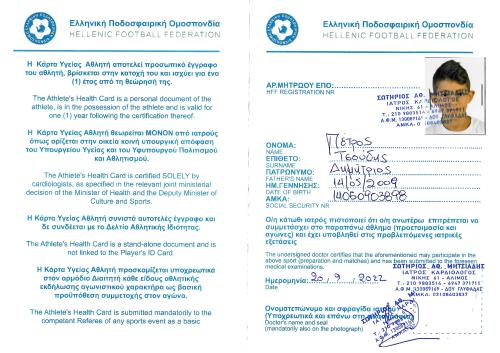 Ελληνική Ποδοσφαιρική Ομοσπονδία
HELLENIC FOOTBALL FEDERATION
Η Κάρτα Υγείας Αθλητή αποτελεί προσωπικό έγγραφο
του αθλητή, βρίσκεται στην κατοχή του και ισχύει για ένα
(1) έτος από τη θεώρησή της.
The Athlete's Health Card is a personal document of the
athlete, is in the possession of the athlete and is valid for
one (1) year following the certification thereof.
Η Κάρτα Υγείας Αθλητή θεωρείται ΜΟΝΟΝ από ιατρούς
όπως ορίζεται στην οικεία κοινή υπουργική απόφαση
του Υπουργείου Υγείας και του Υφυπουργού Πολιτισμού
και Αθλητισμού.
The Athlete's Health Card is certified SOLELY by
cardiologists, as specified in the relevant joint ministerial
decision of the Minister of Health and the Deputy Minister of
Culture and Sports.
Η Κάρτα Υγείας Αθλητή συνιστά αυτοτελές έγγραφο και
δε συνδέεται με το Δελτίο Αθλητικής Ιδιότητας.
The Athlete's Health Card is a stand-alone document and is
not linked to the Player's ID Card.
Η Κάρτα Υγείας Αθλητή προσκομίζεται υποχρεωτικά
στον αρμόδιο Διαιτητή κάθε είδους αθλητικής
εκδήλωσης αγωνιστικού χαρακτήρα ως βασική
προϋπόθεση συμμετοχής στον αγώνα.
The Athlete's Health Card is submitted mandatorily to the
competent Referee of any sports event as a basic
Ελληνική Ποδοσφαιρική Ομοσπονδία
HELLENIC FOOTBALL FEDERATION
ΑΡ.ΜΗΤΡΩΟΥ ΕΠΟ:
HFF REGISTRATION NR
ΣΩΤΗΡΙΟΣ ΑΘ. ΜΗΤΣΙΑΔΗΣ
ΙΑΤΡΟΣ ΚΑΡΔΙΟΛΟΓΟΣ
ΝΙΚΗΣ 61 - ΑΛΙΜΟΣ
ΟΝΟΜΑ: Πέτρος
NAME
ΕΠΙΘΕΤΟ: Τσουδης
SURNAME
ΠΑΤΡΩΝΥΜΟ: Δημήτριος
FATHER'S NAME
ΗΜ.ΓΕΝΝΗΣΗΣ: 14/05/2009
DATE OF BIRTH
ΑΜΚΑ: 14050903898
SOCIAL SECURITY NR
Ο/η κάτωθι ιατρός πιστοποιεί ότι ο/η ανωτέρω επιτρέπεται να
συμμετάσχει στο παραπάνω άθλημα (προετοιμασία και
αγώνες) και έχει υποβληθεί στις προβλεπόμενες ιατρικές
εξετάσεις
The undersigned doctor certifies that the aforementioned may participate in the
above sport (preparation and matches) and has been submitted to the foreseen
medical examinations.
Ημερομηνία: 20, 9, 2022
DATE
ΣΩΤΗΡΙΟΣ ΑΘ. ΜΗΤΣΙΑΔΗΣ
ΙΑΤΡΟΣ ΚΑΡΔΙΟΛΟΓΟΣ
ΝΙΚΗΣ 61 - ΑΛΙΜΟΣ
Ονοματεπώνυμο και σφραγίδα ιατρού
(Υποχρεωτικά και επάνω στη φωτογραφία)
Doctor's name and seal
(mandatorily also on the photograph)